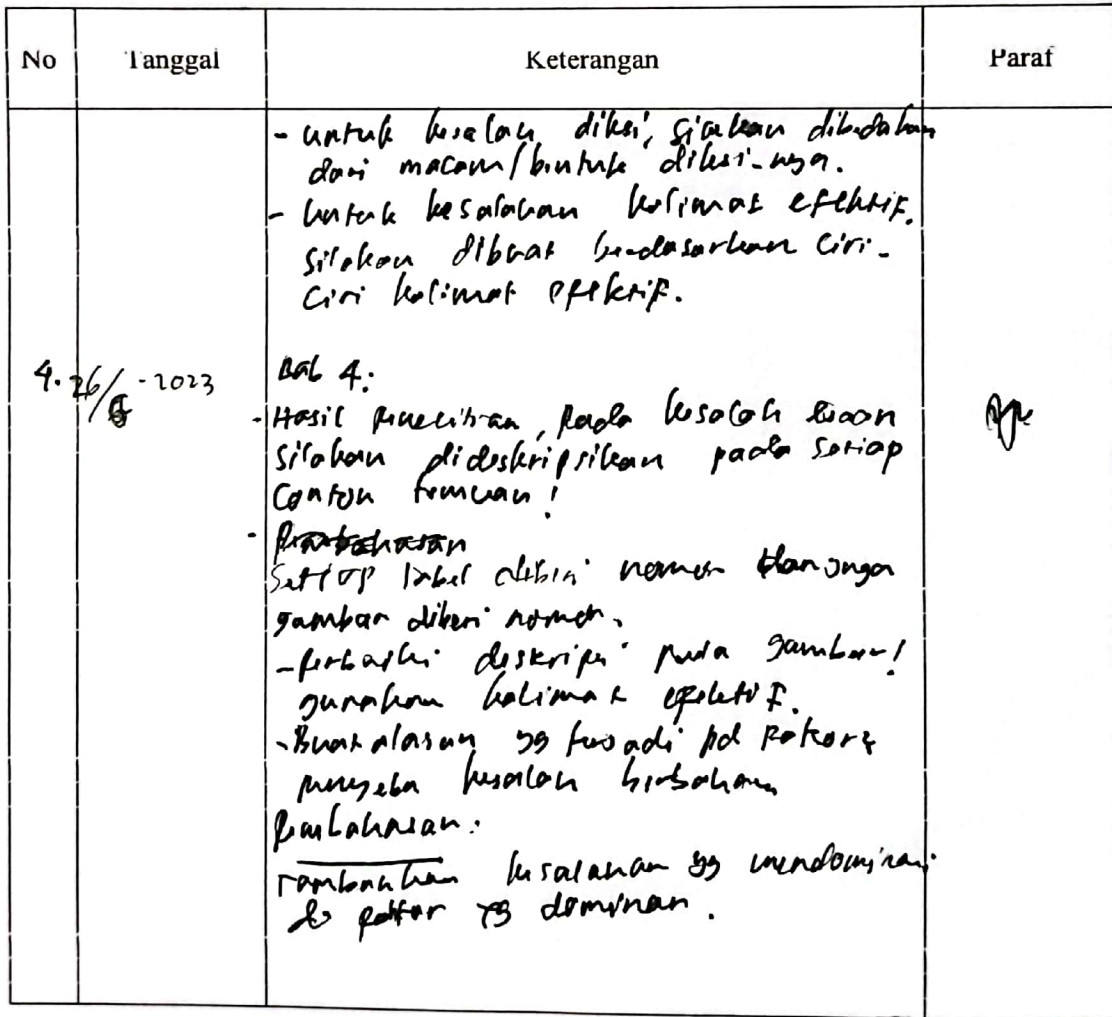 No Tanggal Keterangan Paraf
- untuk kesalahan diksi, silakan dibedakan
dari macam/bentuk diksi-nya.
- Untuk kesalahan kalimat efektif.
silakan dibuat berdasarkan ciri-
ciri kalimat efektif.
4. 26/ -2023 Bab 4:
- Hasil penelitian, pada kesalah
silakan dideskripsikan pada setiap
Contoh temuan!
- Pembahasan
Setiap tabel diberi nomor dan juga
gambar diberi nomor.
- perbaiki deskripsi pada gambar!
gunakan kalimat efektif.
- Buat alasan yg terjadi pd faktor2
penyeba kesalahan berbahasa
Pembahasan:
Tambahkan kesalahan yg mendominasi
& faktor yg dominan.